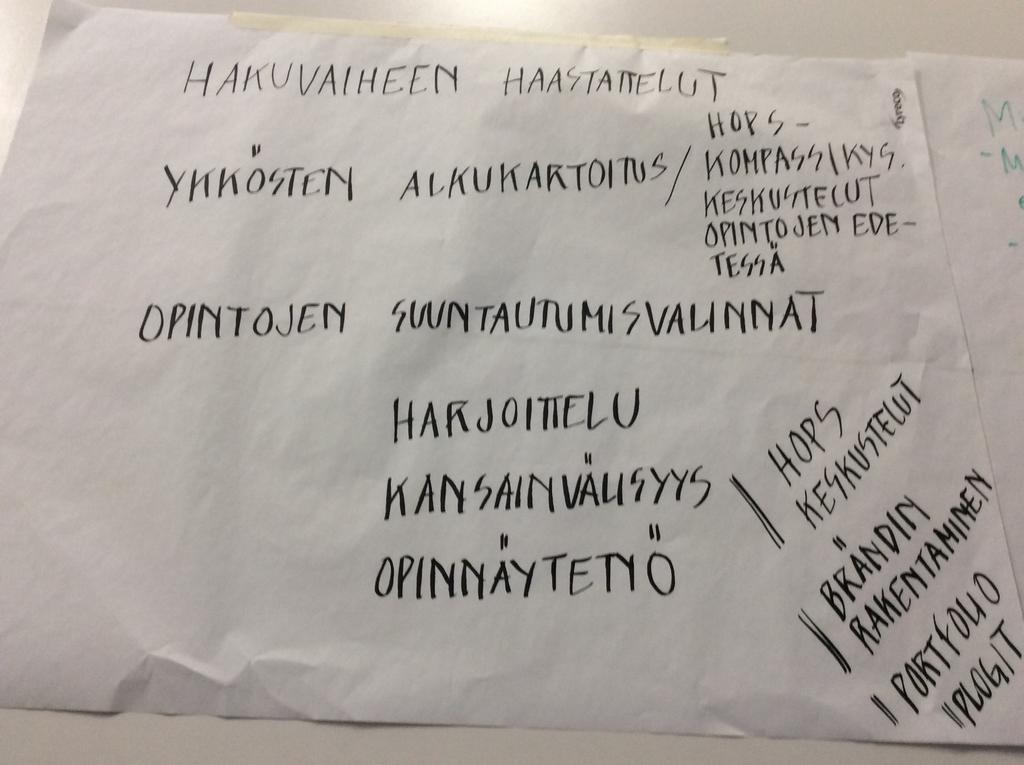 HAKUVAIHEEN HAASTATTELUT
YKKÖSTEN ALKUKARTOITUS /
HOPS-
KOMPASSIKYS.
KESKUSTELUT
OPINTOJEN EDE-
TESSÄ
OPINTOJEN SUUNTAUTUMISVALINNAT
HARJOITTELU
KANSAINVÄLISYYS
OPINNÄYTETYÖ
HOPS
KESKUSTELUT
BRÄNDIN
RAKENTAMINEN
PORTFOLIO
PLOGIT